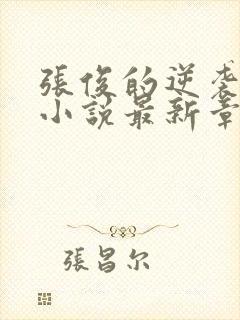 張俊的逆袭
小説最新章
張昌尔